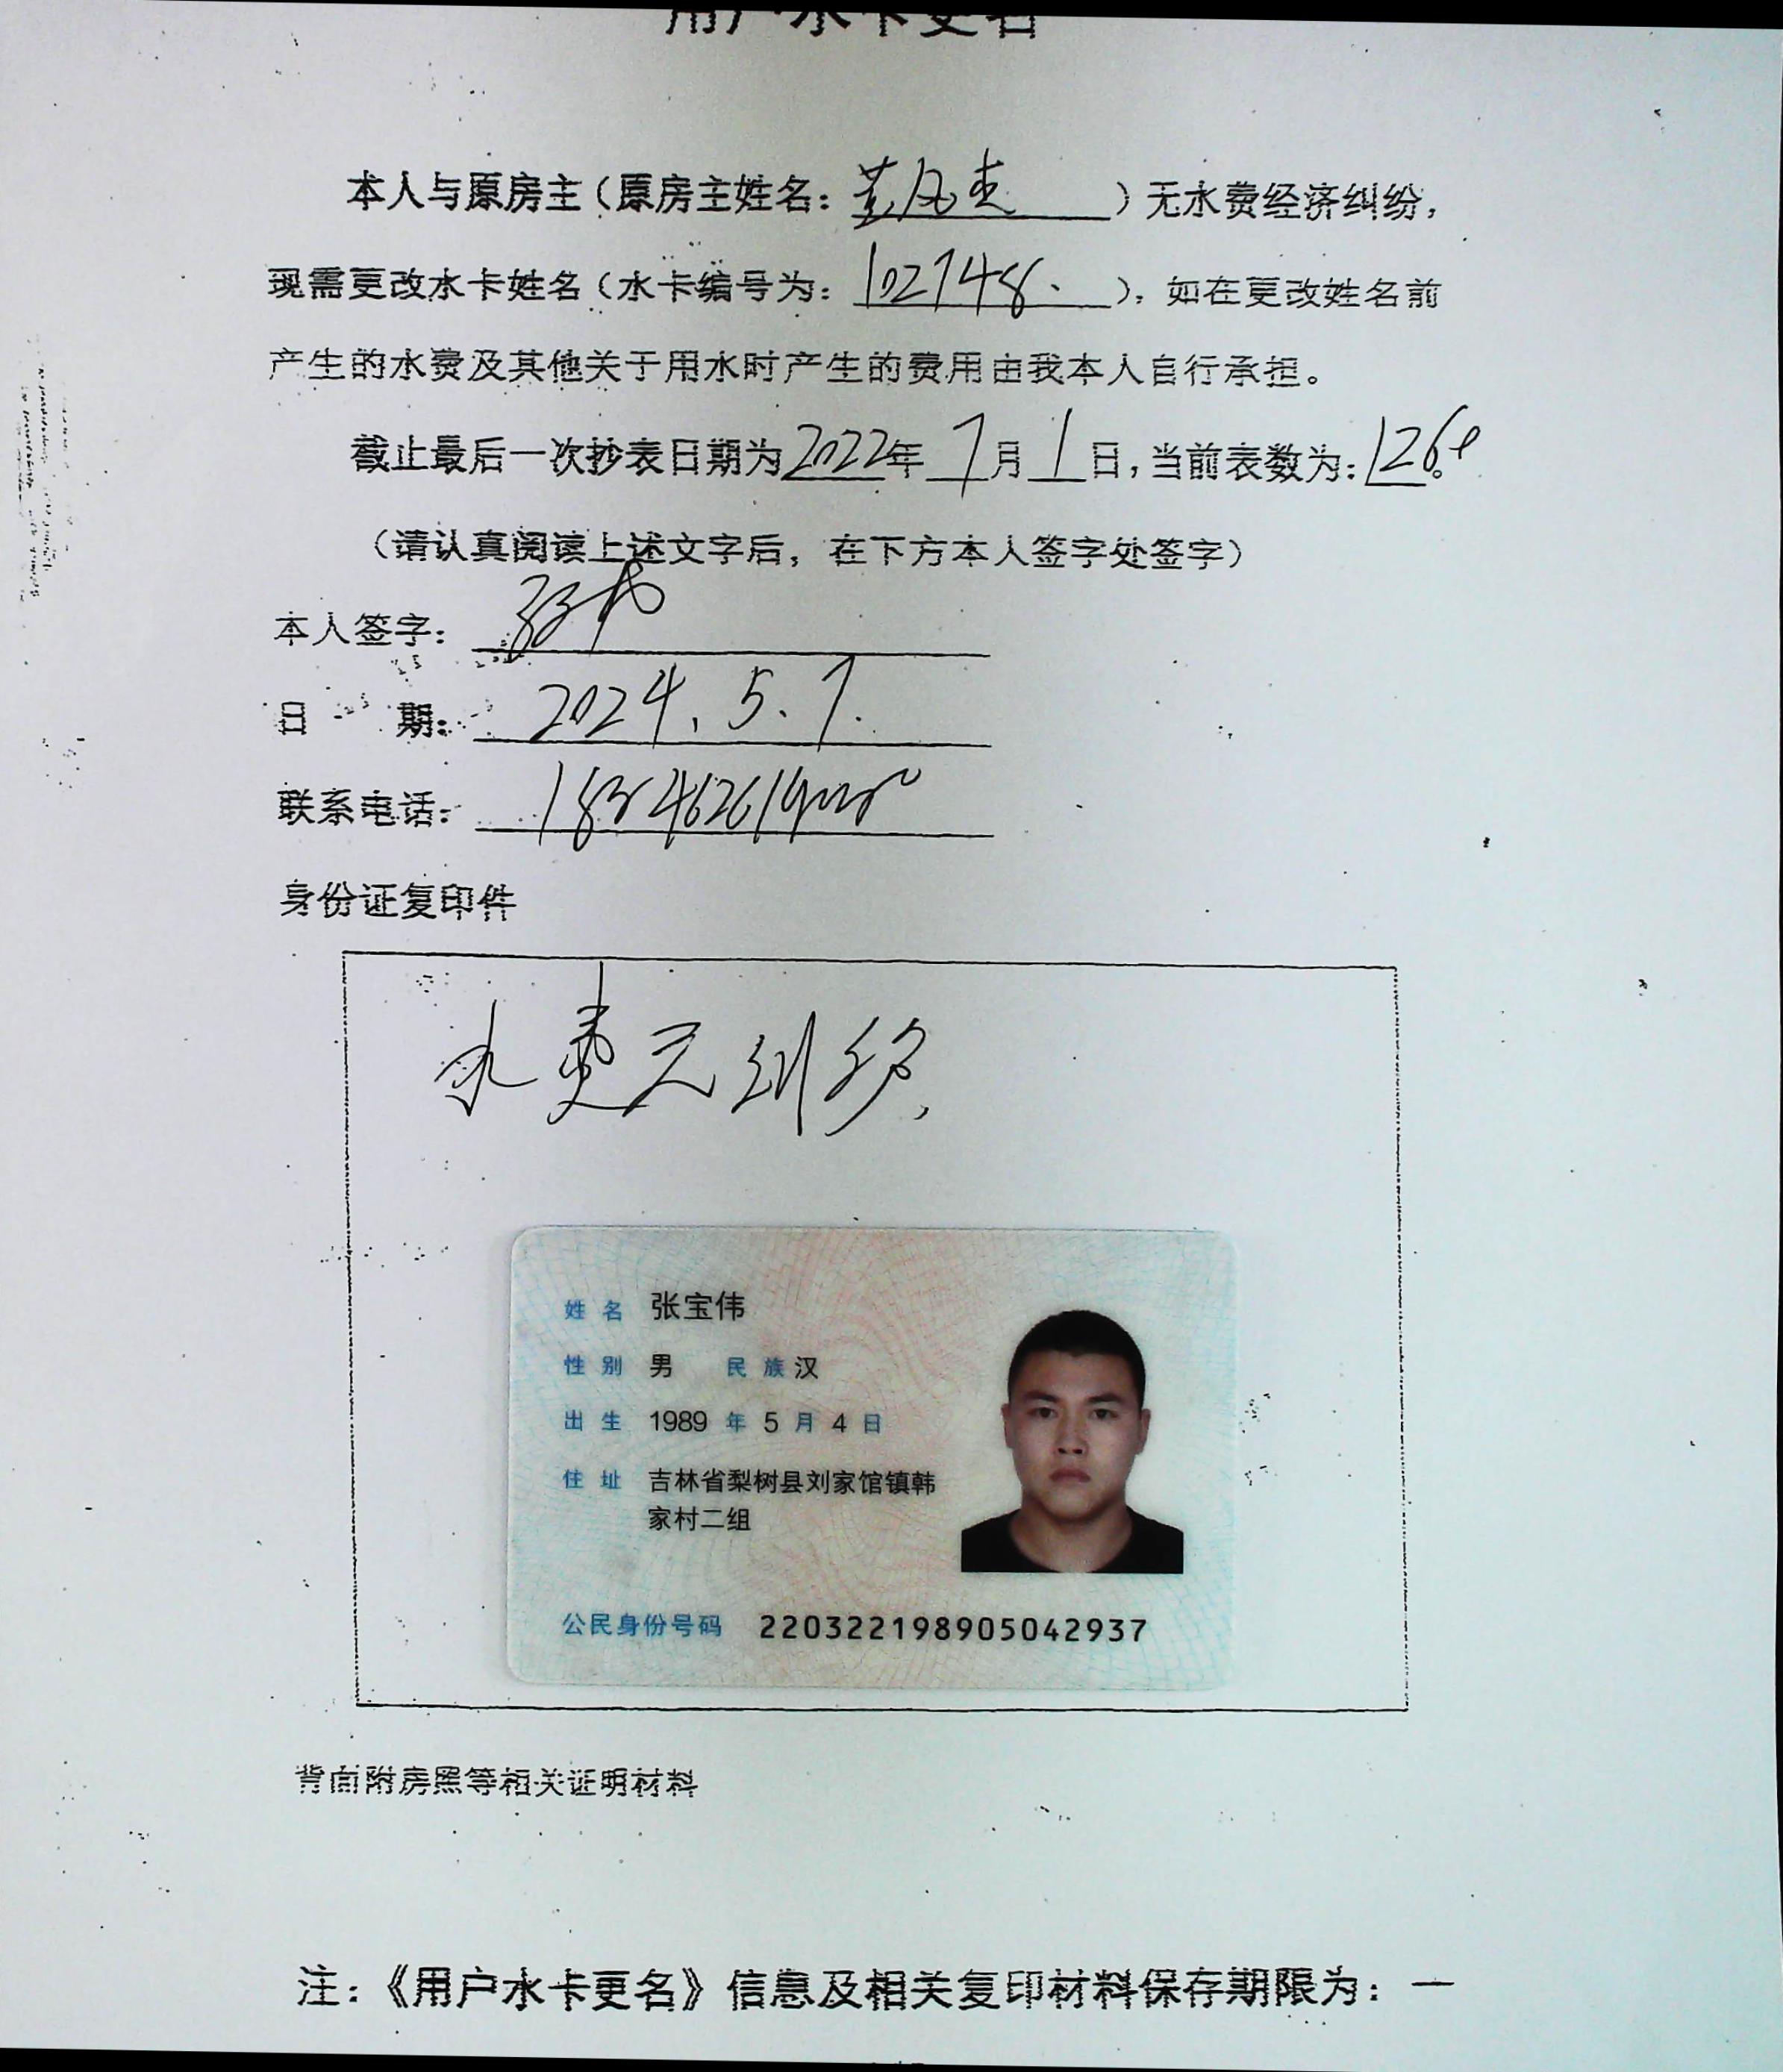 用户水卡更名
本人与原房主（原房主姓名：）无水费经济纠纷，
现需更改水卡姓名（水卡编号为：102748.），如在更改姓名前
产生的水费及其他关于用水时产生的费用由我本人自行承担。
截止最后一次抄表日期为2022年7月1日，当前表数为：126
（请认真阅读上述文字后，在下方本人签字处签字）
本人签字：
日 期：2024.5.7.
联系电话：
身份证复印件
水费无纠纷,
姓名 张宝伟
性别 男 民族 汉
出生 1989 年 5 月 4 日
住址 吉林省梨树县刘家馆镇韩
家村二组
公民身份号码 220322198905042937
背面附房照等相关证明材料
注：《用户水卡更名》信息及相关复印材料保存期限为：一